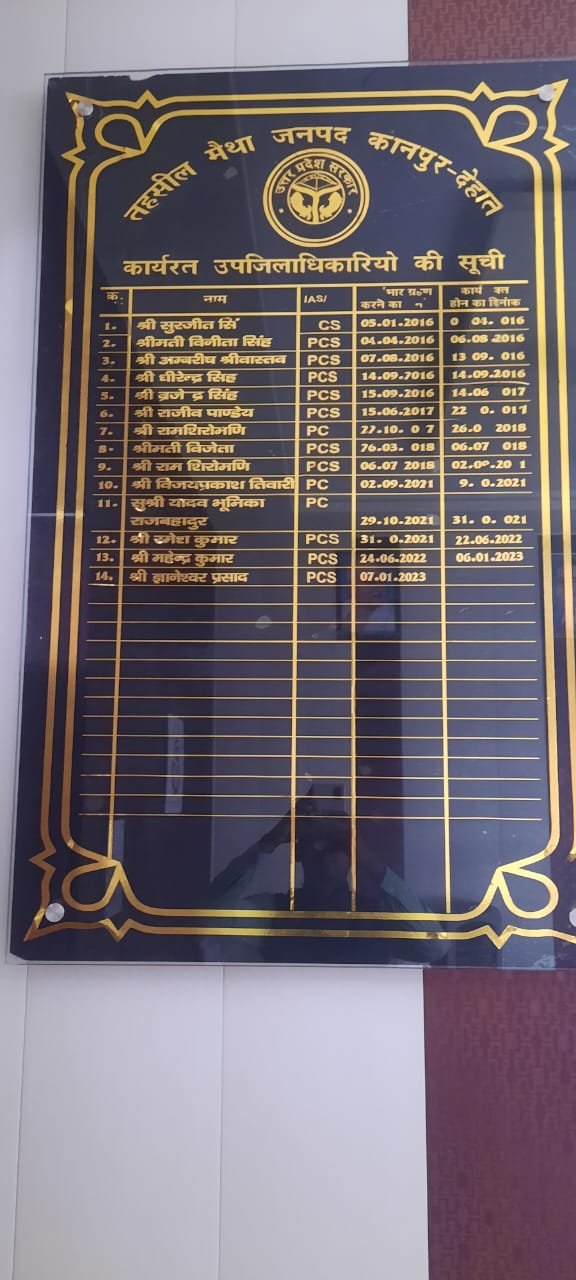 तहसील मैथा जनपद कानपुर-देहात
उत्तर प्रदेश सरकार
कार्यरत उपजिलाधिकारियो की सूची
क्र. नाम IAS/ भार ग्रहण करने का कार्य होन का दिनांक
1. श्री सुरजीत सिं CS 05.01.2016 0 04. 016
2. श्रीमती विनीता सिंह PCS 04.04.2016 06.08.2016
3. श्री अम्बरीष श्रीवास्तव PCS 07.08.2016 13 09. 016
4. श्री धीरेन्द्र सिंह PCS 14.09.2016 14.09.2016
5. श्री ब्रजे द्र सिंह PCS 15.09.2016 14.06 017
6. श्री राजीव पाण्डेय PCS 15.06.2017 22 0. 017
7. श्री रामशिरोमणि PC 27.10. 0 7 26.0 2018
8. श्रीमती विजेता PCS 26.03. 018 06.07 018
9. श्री राम शिरोमणि PCS 06.07 2018
10. श्री विजयप्रकाश तिवारी PC 02.09.2021 9. 0.2021
11. सुश्री यादव भूमिका PC
राजबहादुर 29.10.2021 31. 0. 021
12. श्री रमेश कुमार PCS 31. 0.2021 22.06.2022
13. श्री महेन्द्र कुमार PCS 24.06.2022 06.01.2023
14. श्री ज्ञानेश्वर प्रसाद PCS 07.01.2023